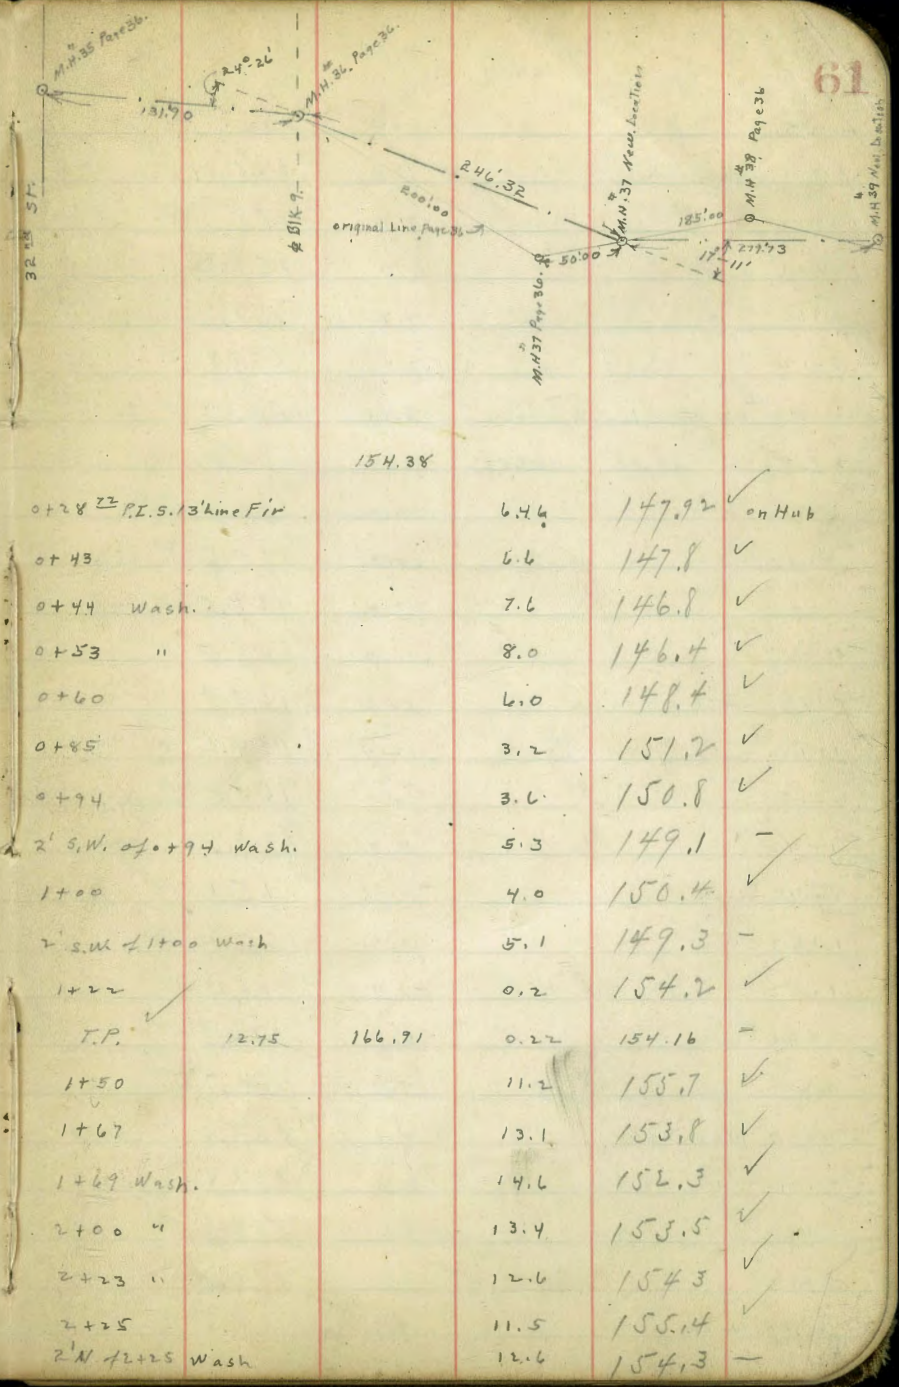 61
M.H.#35 Page 36.
24°-26'
M.H.#36. Page 36.
131.70
32nd St.
¢ Blk 9.
246.32
200.00
original Line Page 36
M.H.#37 New. Location
185.00
M.H.#38 Page 36
M.H.#39 New Location
50.00
17°-11'
279.73
M.H.#37 Page 36.
154.38
0+28 72 P.I. 5.13' Line Fir 6.46 147.92 ✓ on Hub
0+43 6.6 147.8 ✓
0+44 Wash. 7.6 146.8 ✓
0+53 " 8.0 146.4 ✓
0+60 6.0 148.4 ✓
0+85 3.2 151.2 ✓
0+94 3.6 150.8 ✓
2' S.W. of 0+94 Wash. 5.3 149.1 –
1+00 4.0 150.4 ✓
2' S.W. of 1+00 Wash 5.1 149.3 –
1+22 0.2 154.2 ✓
T.P. ✓ 12.75 166.91 0.22 154.16 –
1+50 11.2 155.7 ✓
1+67 13.1 153.8 ✓
1+69 Wash. 14.6 152.3 ✓
2+00 " 13.4 153.5 ✓
2+23 " 12.6 154.3 ✓
2+25 11.5 155.4 ✓
2' N of 2+25 Wash 12.6 154.3 –